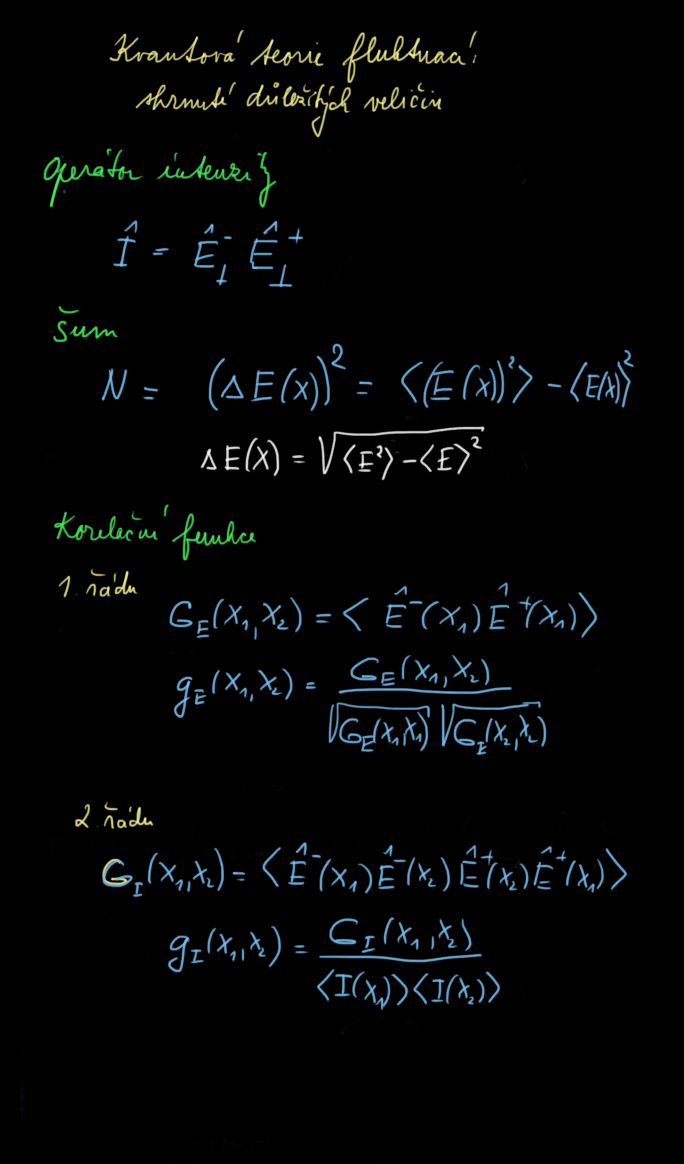 Kvantová teorie fluktuací:
shrnutí důležitých veličin
Operátor intenzity
Î = Ê⁻_⊥ Ê⁺_⊥
Šum
N = (ΔE(x))² = ⟨(E(x))²⟩ - ⟨E(x)⟩²
ΔE(x) = √(⟨E²⟩ - ⟨E⟩²)
Korelační funkce
1. řádu
G_E(x₁,x₂) = ⟨Ê⁻(x₁) Ê⁺(x₁)⟩
g_E(x₁,x₂) = G_E(x₁,x₂) / (√G_E(x₁,x₁) √G_E(x₂,x₂))
2. řádu
G_I(x₁,x₂) = ⟨Ê⁻(x₁) Ê⁻(x₂) Ê⁺(x₂) Ê⁺(x₁)⟩
g_I(x₁,x₂) = G_I(x₁,x₂) / (⟨I(x₁)⟩⟨I(x₂)⟩)